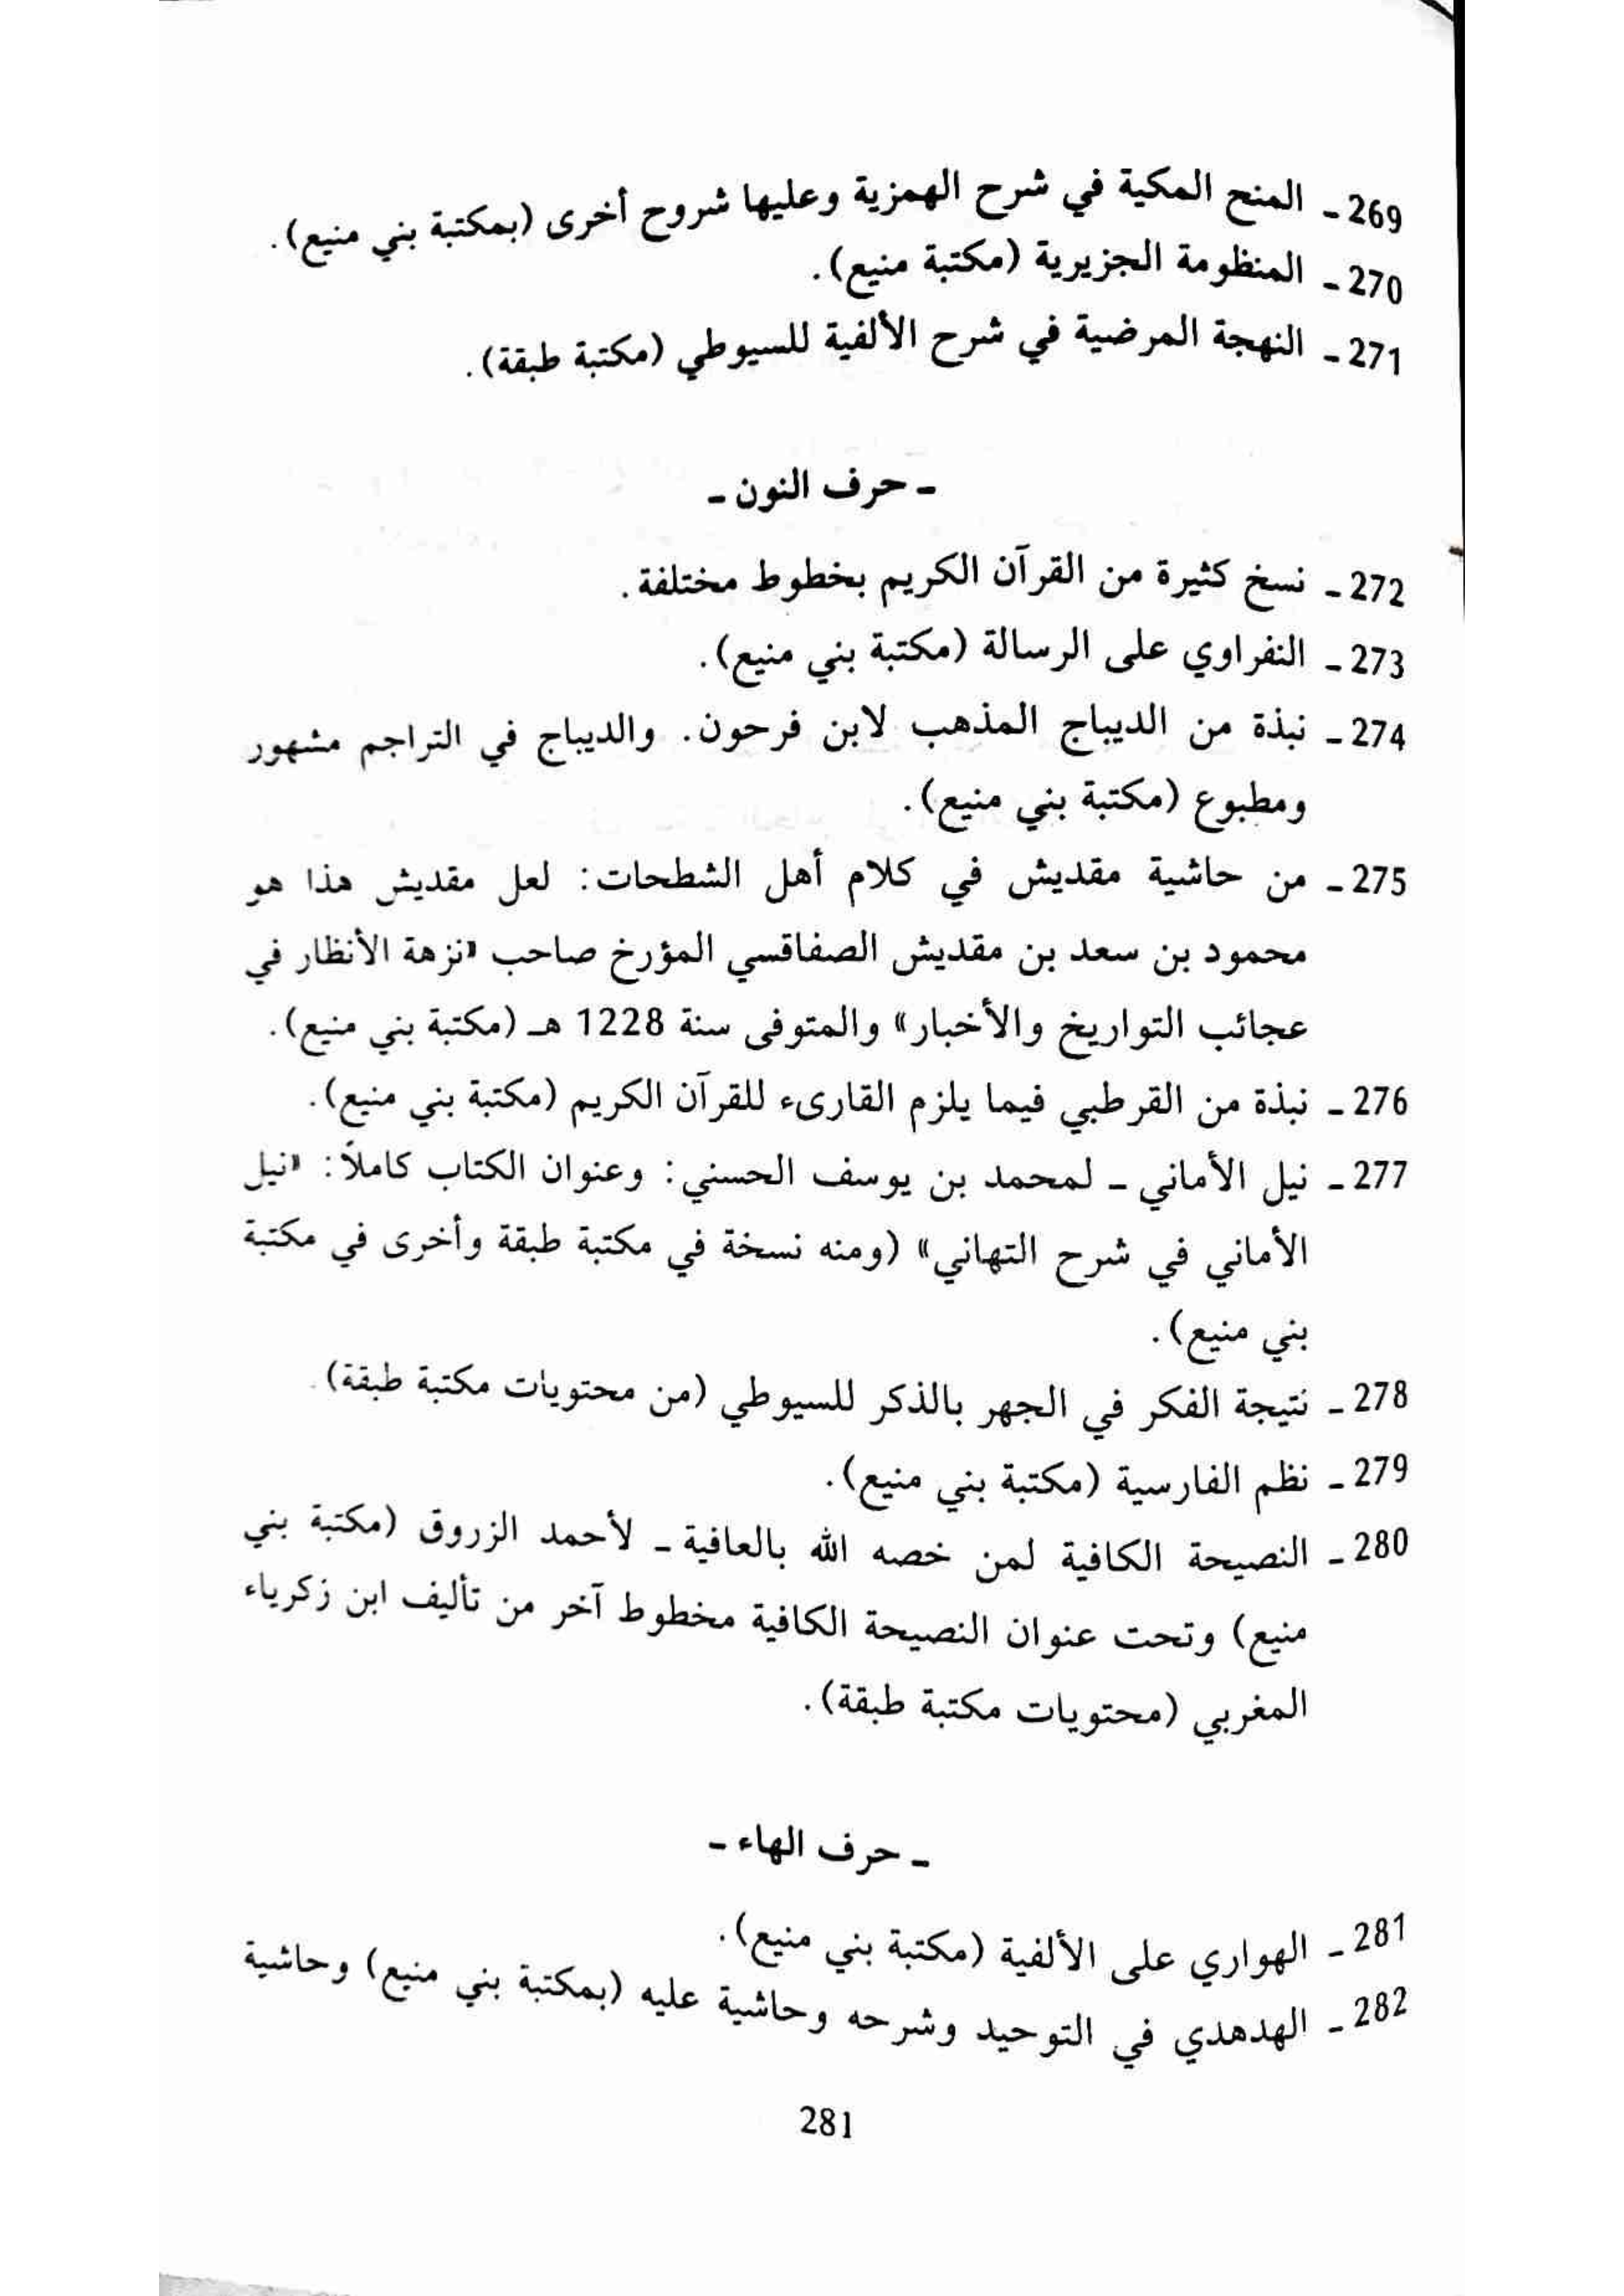 269 ـ المنح المكية في شرح الهمزية وعليها شروح أخرى (بمكتبة بني منيع).
270 ـ المنظومة الجزيرية (مكتبة منيع).
271 ـ النهجة المرضية في شرح الألفية للسيوطي (مكتبة طبقة).
ـ حرف النون ـ
272 ـ نسخ كثيرة من القرآن الكريم بخطوط مختلفة.
273 ـ النفراوي على الرسالة (مكتبة بني منيع).
274 ـ نبذة من الديباج المذهب لابن فرحون. والديباج في التراجم مشهور
ومطبوع (مكتبة بني منيع).
275 ـ من حاشية مقديش في كلام أهل الشطحات: لعل مقديش هذا هو
محمود بن سعد بن مقديش الصفاقسي المؤرخ صاحب «نزهة الأنظار في
عجائب التواريخ والأخبار» والمتوفى سنة 1228 هـ (مكتبة بني منيع).
276 ـ نبذة من القرطبي فيما يلزم القارىء للقرآن الكريم (مكتبة بني منيع).
277 ـ نيل الأماني ـ لمحمد بن يوسف الحسني: وعنوان الكتاب كاملاً: «نيل
الأماني في شرح التهاني» (ومنه نسخة في مكتبة طبقة وأخرى في مكتبة
بني منيع).
278 ـ نتيجة الفكر في الجهر بالذكر للسيوطي (من محتويات مكتبة طبقة).
279 ـ نظم الفارسية (مكتبة بني منيع).
280 ـ النصيحة الكافية لمن خصه الله بالعافية ـ لأحمد الزروق (مكتبة بني
منيع) وتحت عنوان النصيحة الكافية مخطوط آخر من تأليف ابن زكرياء
المغربي (محتويات مكتبة طبقة).
ـ حرف الهاء ـ
281 ـ الهواري على الألفية (مكتبة بني منيع).
282 ـ الهدهدي في التوحيد وشرحه وحاشية عليه (بمكتبة بني منيع) وحاشية
281